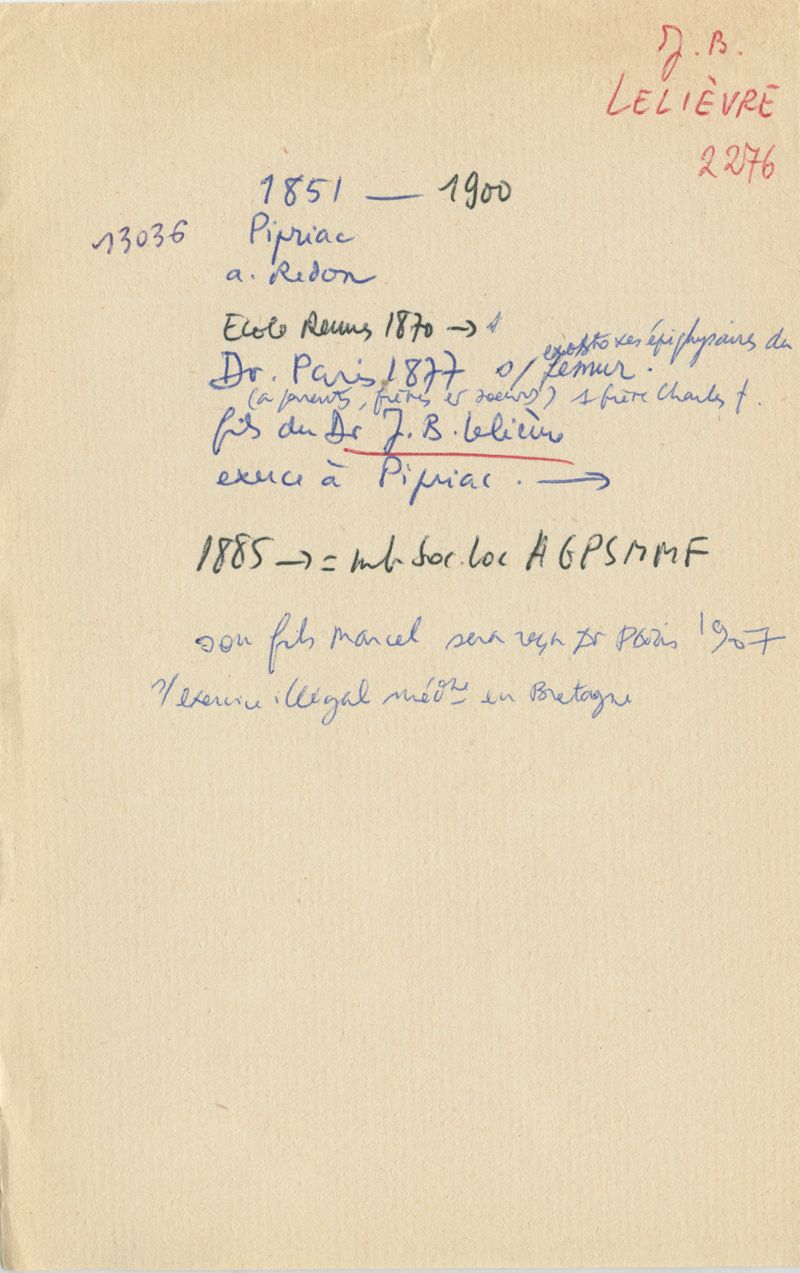 J. B.
LELIÈVRE
2276
1851 — 1900
13036 Pipriac
a. Redon
Ecole Rennes 1870 →
exostoses épiphysaires du
Dr. Paris 1877 s/ fémur.
(a parents, frères et soeurs) 1 frère Charles †.
fils du Dr J. B. Lelièvre
exerce à Pipriac. →
1885 → = mb Soc. loc AGPSMMF
son fils Marcel sera reçu Dr Paris 1907
s/ exercice illégal méd ne en Bretagne